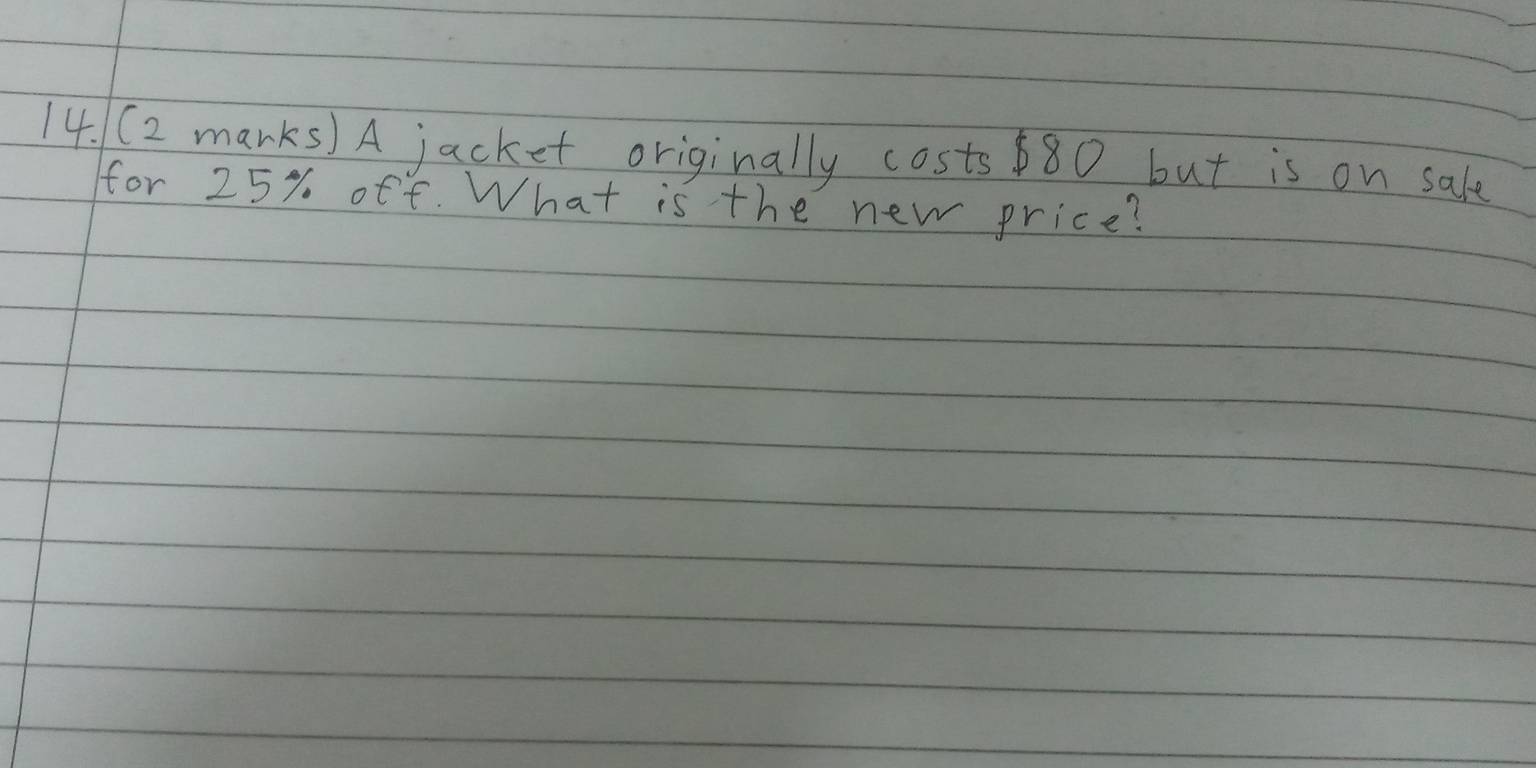 14. (2 marks) A jacket originally costs $80 but is on sale
for 25% off. What is the new price?